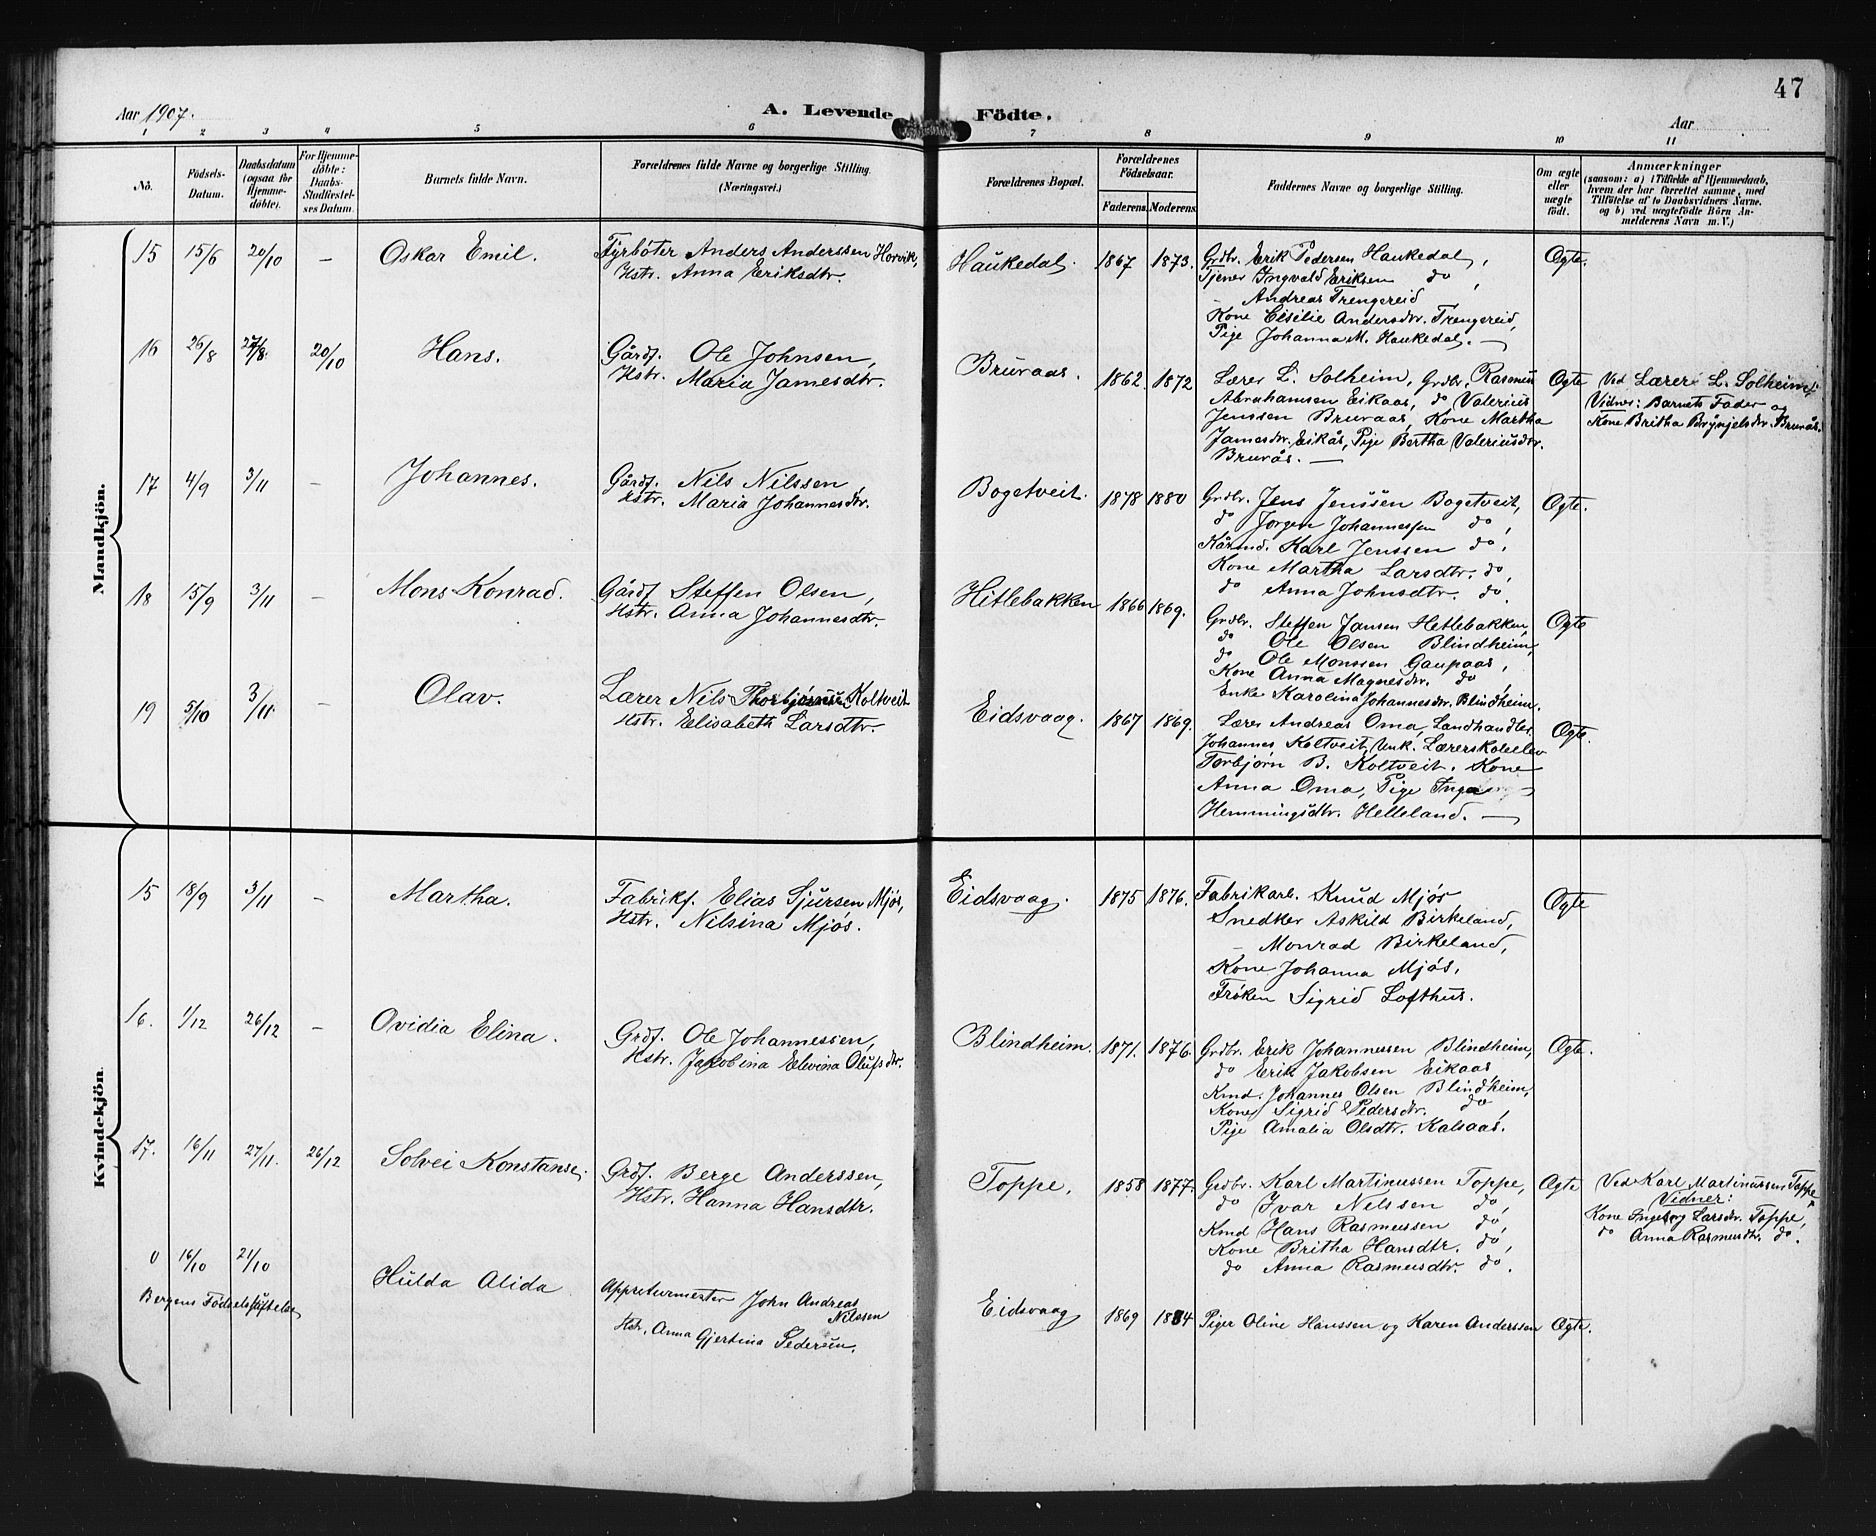 47
Aar 1907.
A. Levende Födte.
Aar
1 2 3 4 5 6 7 8 9 10 11
No.
Födsels-Datum.
Daabsdatum (ogsaa for Hjemme-döbte).
For Hjemme-döbte: Daabs-Stadfæstel-ses Datum.
Barnets fulde Navn.
Forældrenes fulde Navne og borgerlige Stilling. (Næringsvei.)
Forældrenes Bopæl.
Forældrenes Födselsaar.
Faderens. Moderens.
Faddernes Navne og borgerlige Stilling.
Om ægte eller uægte födt.
Anmærkninger
(saasom: a) i Tilfælde af Hjemmedaab,
hvem der har forrettet samme, med
Tilföielse af to Daabsvidners Navne.
og b) ved uægtefödte Börn An-
melderens Navn m. V.)
Mandkjön.
15 15/6 20/10 – Oskar Emil.
Fyrböter Anders Anderssen Horvik,
Hstr. Anna Eriksdtr.
Haukedal. 1867 1873.
Grdbr. Erik Pedersen Haukedal,
Tjener Ingvald Eriksen do,
– Andreas Trengereid
Kone Cisilie Andersdtr. Trengereid,
Pige Johanna M. Haukedal. –
Ögte.
16 26/8 27/8. 20/10 Hans.
Gårdf. Ole Johnsen,
Hstr. Maria Jamesdtr.
Bruvaas. 1862 1872
Lærer L. Solheim, Grdbr. Rasmus
Abrahamsen Eikaas, do Valerius
Jenssen Bruvaas, Kone Martha
Jamesdtr. Eikås, Pige Bertha Valeriusdtr.
Bruvås. –
Ögte
Ved Lærer L. Solheim.
Vidner: Barnets Fader og
Kone Britha Brynjelsdtr. Bruvås.
17 4/9 3/11 – Johannes.
Gårdf. Nils Nilssen,
Hstr. Maria Johannesdtr.
Bogetveit. 1878 1880
Grdbr. Jens Jenssen Bogetveit,
do Jørgen Johannessen do,
Kårmd. Karl Jenssen do,
Kone Martha Larsdtr. do,
do Anna Johnsdtr. do.
Ögte.
18 15/9 3/11 – Mons Konrad.
Gårdf Steffen Olsen,
Hstr. Anna Johannesdtr.
Hitlebakken 1866 1869.
Grdbr. Steffen Jansen Hetlebakken,
do Ole Olsen Blindheim,
do Ole Monssen Gaupaas,
Kone Anna Magnesdtr. do
Enke Karolina Johannesdtr. Blindheim.
Ögte
19 5/10 3/11. – Olav.
Lærer Nils Koltveit
Hstr. Elisabeth Larsdtr.
Eidsvaag. 1867 1869.
Lærer Andreas Oma, Landhandler
Johannes Koltveit, Unk. Lærerskoleelev
Torbjørn B. Koltveit. Kone
Anna Oma, Pige Inga
Hemmingsdtr. Helleland. –
Ögte.
Kvindekjön
15 18/9 3/11 – Martha.
Fabrikf. Elias Sjursen Mjøs,
Hstr. Nilsina Mjøs.
Eidsvaag. 1875 1876.
Fabrikarb. Knud Mjøs
Snedker Askild Birkeland,
– Monrad Birkeland,
Kone Johanna Mjøs,
Frøken Sigrid Lofthus.
Ögte
16. 1/12 26/12 – Ovidia Elina.
Grdf. Ole Johannessen,
Hstr. Jakobina Elevina Olufsdtr.
Blindheim. 1871. 1876.
Grdbr. Erik Johannessen Blindheim,
do Erik Jakobsen Eikaas,
Kmd. Johannes Olsen Blindheim,
Kone Sigrid Pedersdtr. do,
Pige Amalia Olsdtr. Kalsaas.
Ögte.
17. 16/11 27/11. 26/12 Solvei Konstanse.
Grdf. Berge Anderssen,
Hstr. Hanna Hansdtr.
Toppe. 1858 1877.
Grdbr. Karl Martinussen Toppe,
do Ivar Nilssen do,
Kmd Hans Rasmussen do,
Kone Britha Hansdtr. do,
do Anna Rasmusdtr. do.
Ögte
Ved Karl Martinussen Toppe
Vidner:
Kone Ingeborg Larsdtr. Toppe,
do Anna Rasmusdtr. do.
0 16/10 21/10 Hulda Alida
Bergens Födselsstiftelse
Appreturmester John Andreas
Nilssen
Hstr. Anna Gjertina Pedersen.
Eidsvaag 1869 1884
Piger Oline Hanssen og Karen Anderssen
Ögte.